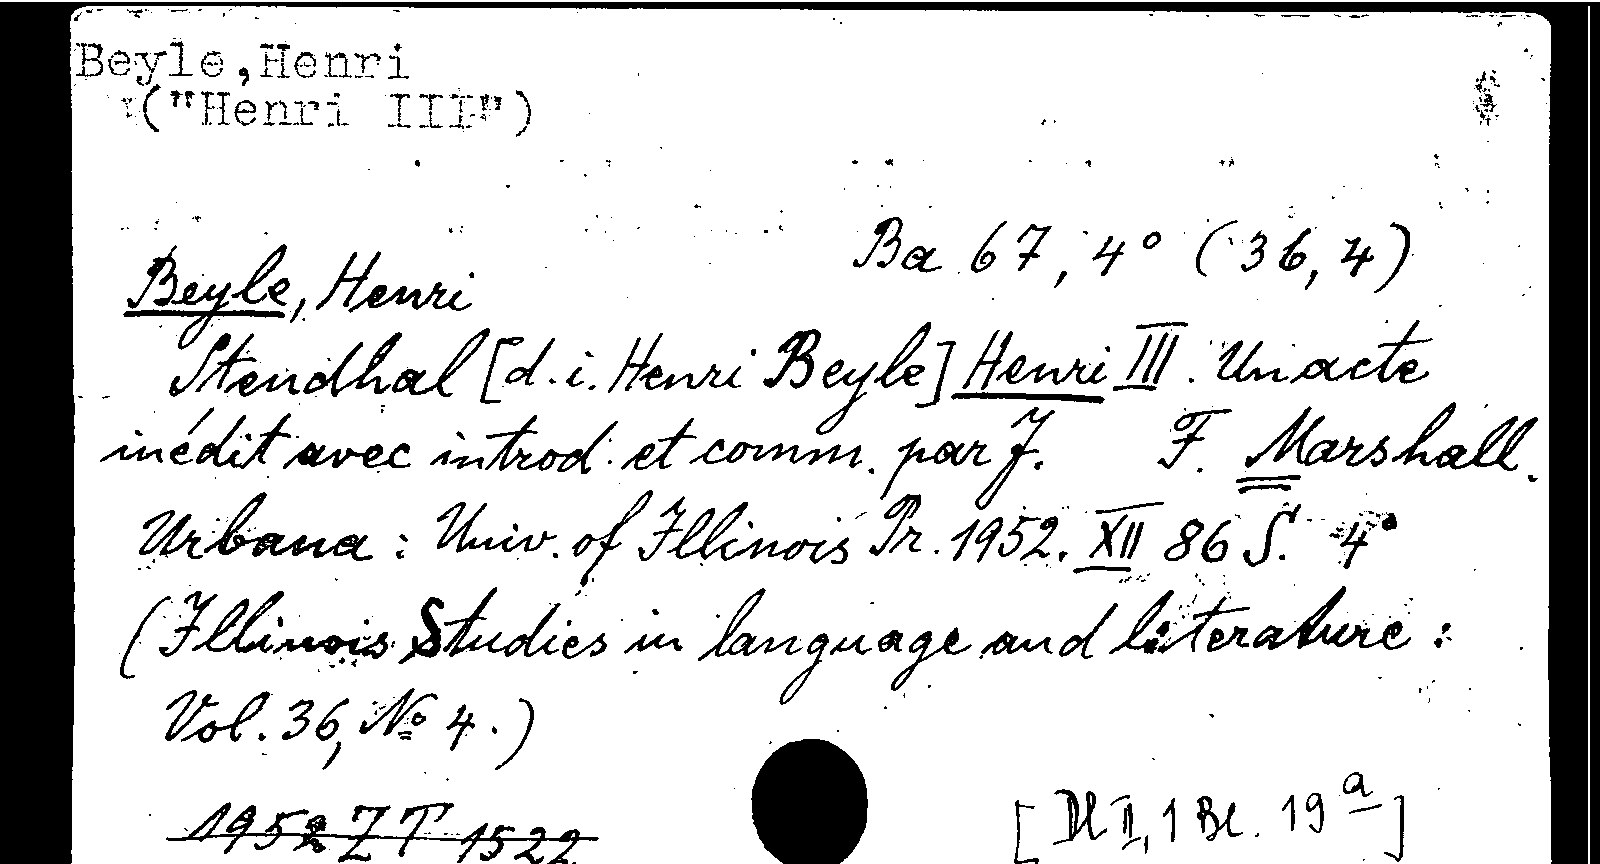 Beyle,Henri
("Henri III")
Ba 67, 4° (36, 4)
Beyle, Henri
Stendhal [d. i. Henri Beyle] Henri III. Un acte
inédit avec introd. et comm. par J. F. Marshall.
Urbana: Univ. of Illinois Pr. 1952. XII 86 S. 4°
(Illinois Studies in language and literature:
Vol. 36, No 4.)
1952 ZT 1522
[Dl II, 1 Bl. 19a]